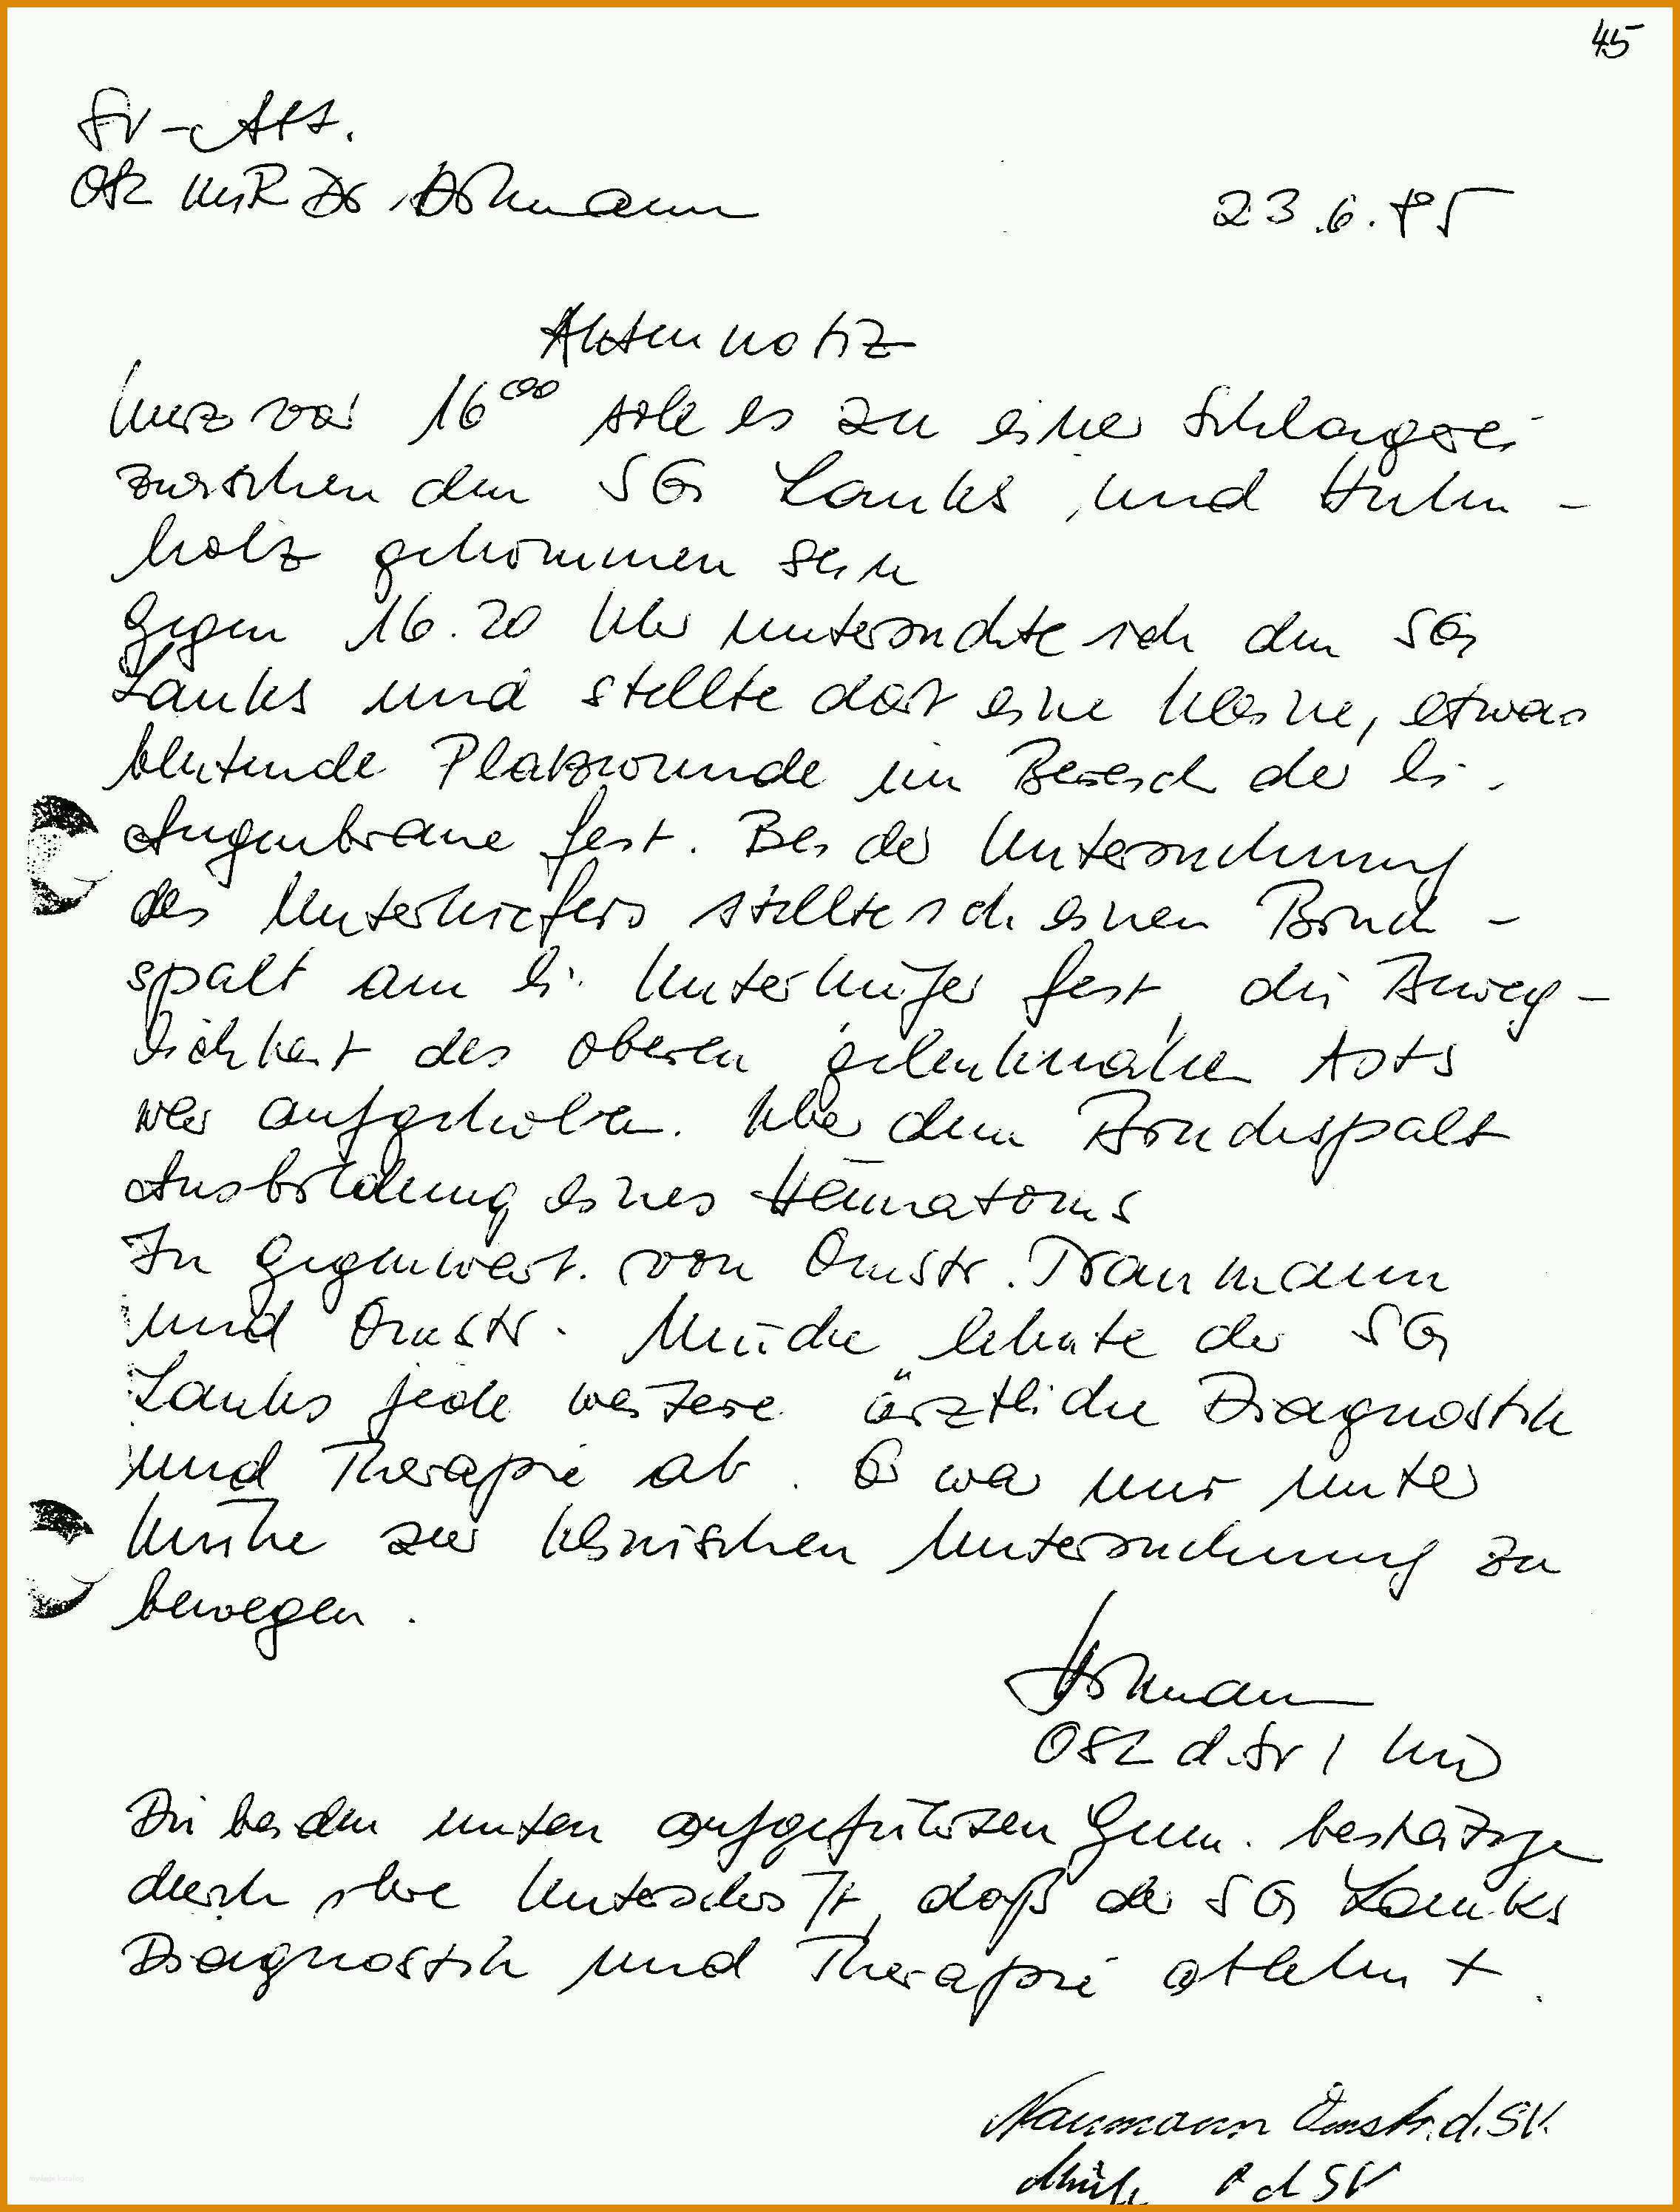 45
SV-Abt.
OSL MR Dr.
23.6.85
Aktennotiz
Kurz vor 16⁰⁰ soll es zu einer Schlägerei
zwischen den SG Lauks und Huln-
holz gekommen sein
Gegen 16.20 Uhr untersuchte ich den SG
Lauks und stellte dort eine kleine, etwas
blutende Platzwunde im Bereich der li.
Augenbraue fest. Bei der Untersuchung
des Unterkiefers stellte ich einen Bruch-
spalt am li. Unterkiefer fest, die Beweg-
lichkeit des oberen gelenknahen Asts
war aufgehoben. Über dem Bruchspalt
Ausbildung eines Hämatoms
In Gegenwart von Omstr. Naumann
und Omstr. Mücke lehnte der SG
Lauks jede weitere ärztliche Diagnostik
und Therapie ab. Er war nur unter
Mühe zur klinischen Untersuchung zu
bewegen.
OSL d. SV
Die beiden unten aufgeführten Genn. bestätigen
durch ihre Unterschrift, daß der SG Lauks
Diagnostik und Therapie ablehnt.
Naumann Omstr. d. SV.
d SV